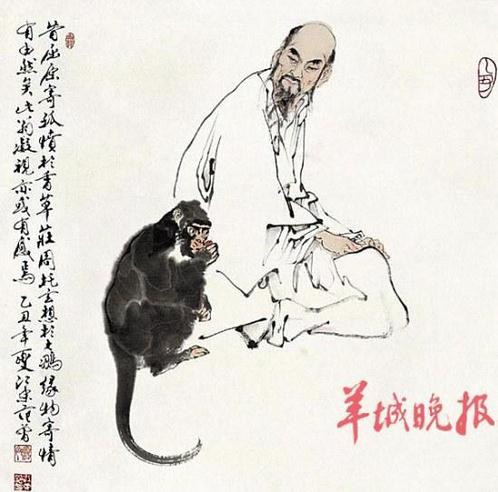 昔屈原寄孤憤於香草莊周托玄想於大鵬緣物寄情
有由然矣此翁凝視亦或有感焉乙丑年夏江東范曾
羊城晚报